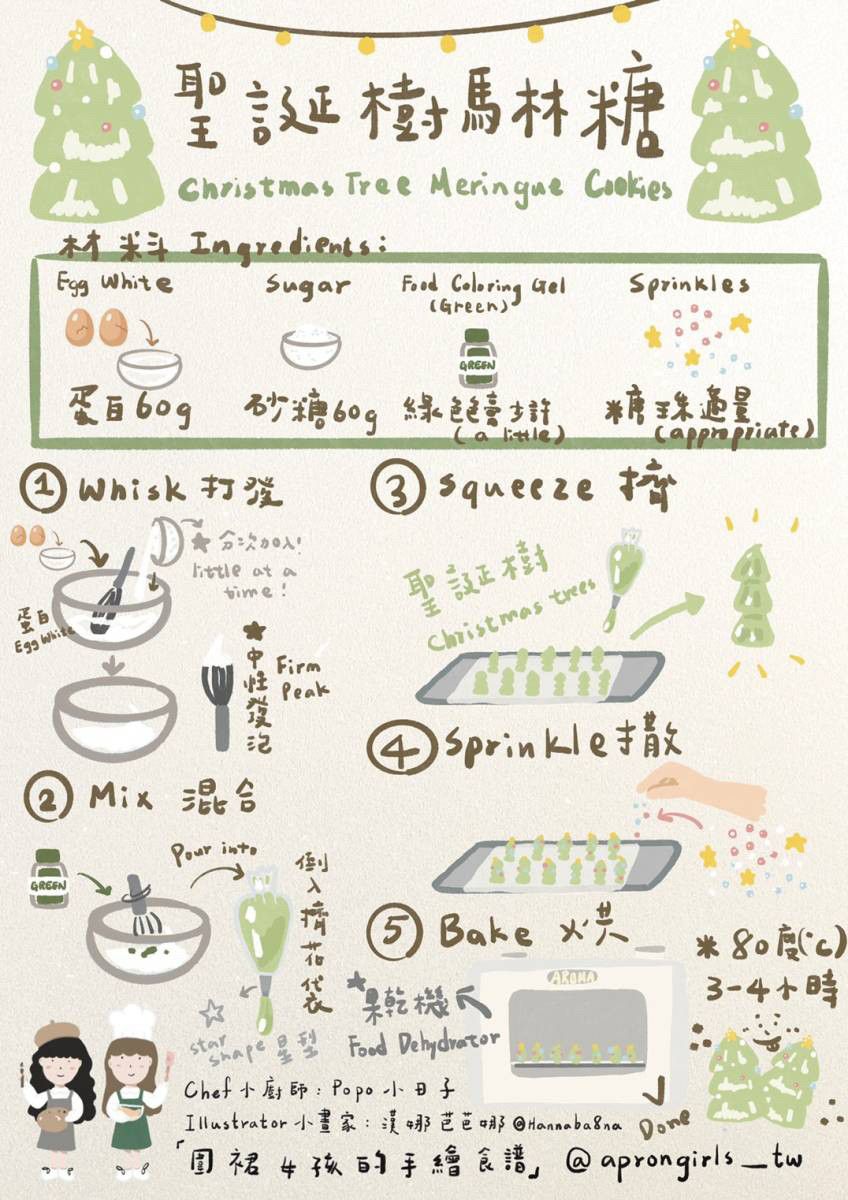 聖誕樹馬林糖
Christmas Tree Meringue Cookies
材料 Ingredients:
Egg White
Sugar
Food Coloring Gel
(Green)
Sprinkles
GREEN
蛋白60g
砂糖60g
綠色膏少許
(a little)
糖珠適量
(appropriate)
① Whisk 打發
★分次加入!
little at a
time!
蛋白
Egg White
★中性發泡
Firm
Peak
② Mix 混合
GREEN
Pour into
倒入擠花袋
☆
star
shape 星型
③ squeeze 擠
聖誕樹
Christmas trees
④ Sprinkle 撒
⑤ Bake 烘
* 80度(°C)
3-4小時
AROMA
★果乾機
Food Dehydrator
Done
Chef 小廚師:Popo 小日子
Illustrator 小畫家:漢娜芭芭娜 @Hannaba8na
「圍裙女孩的手繪食譜」 @aprongirls_tw